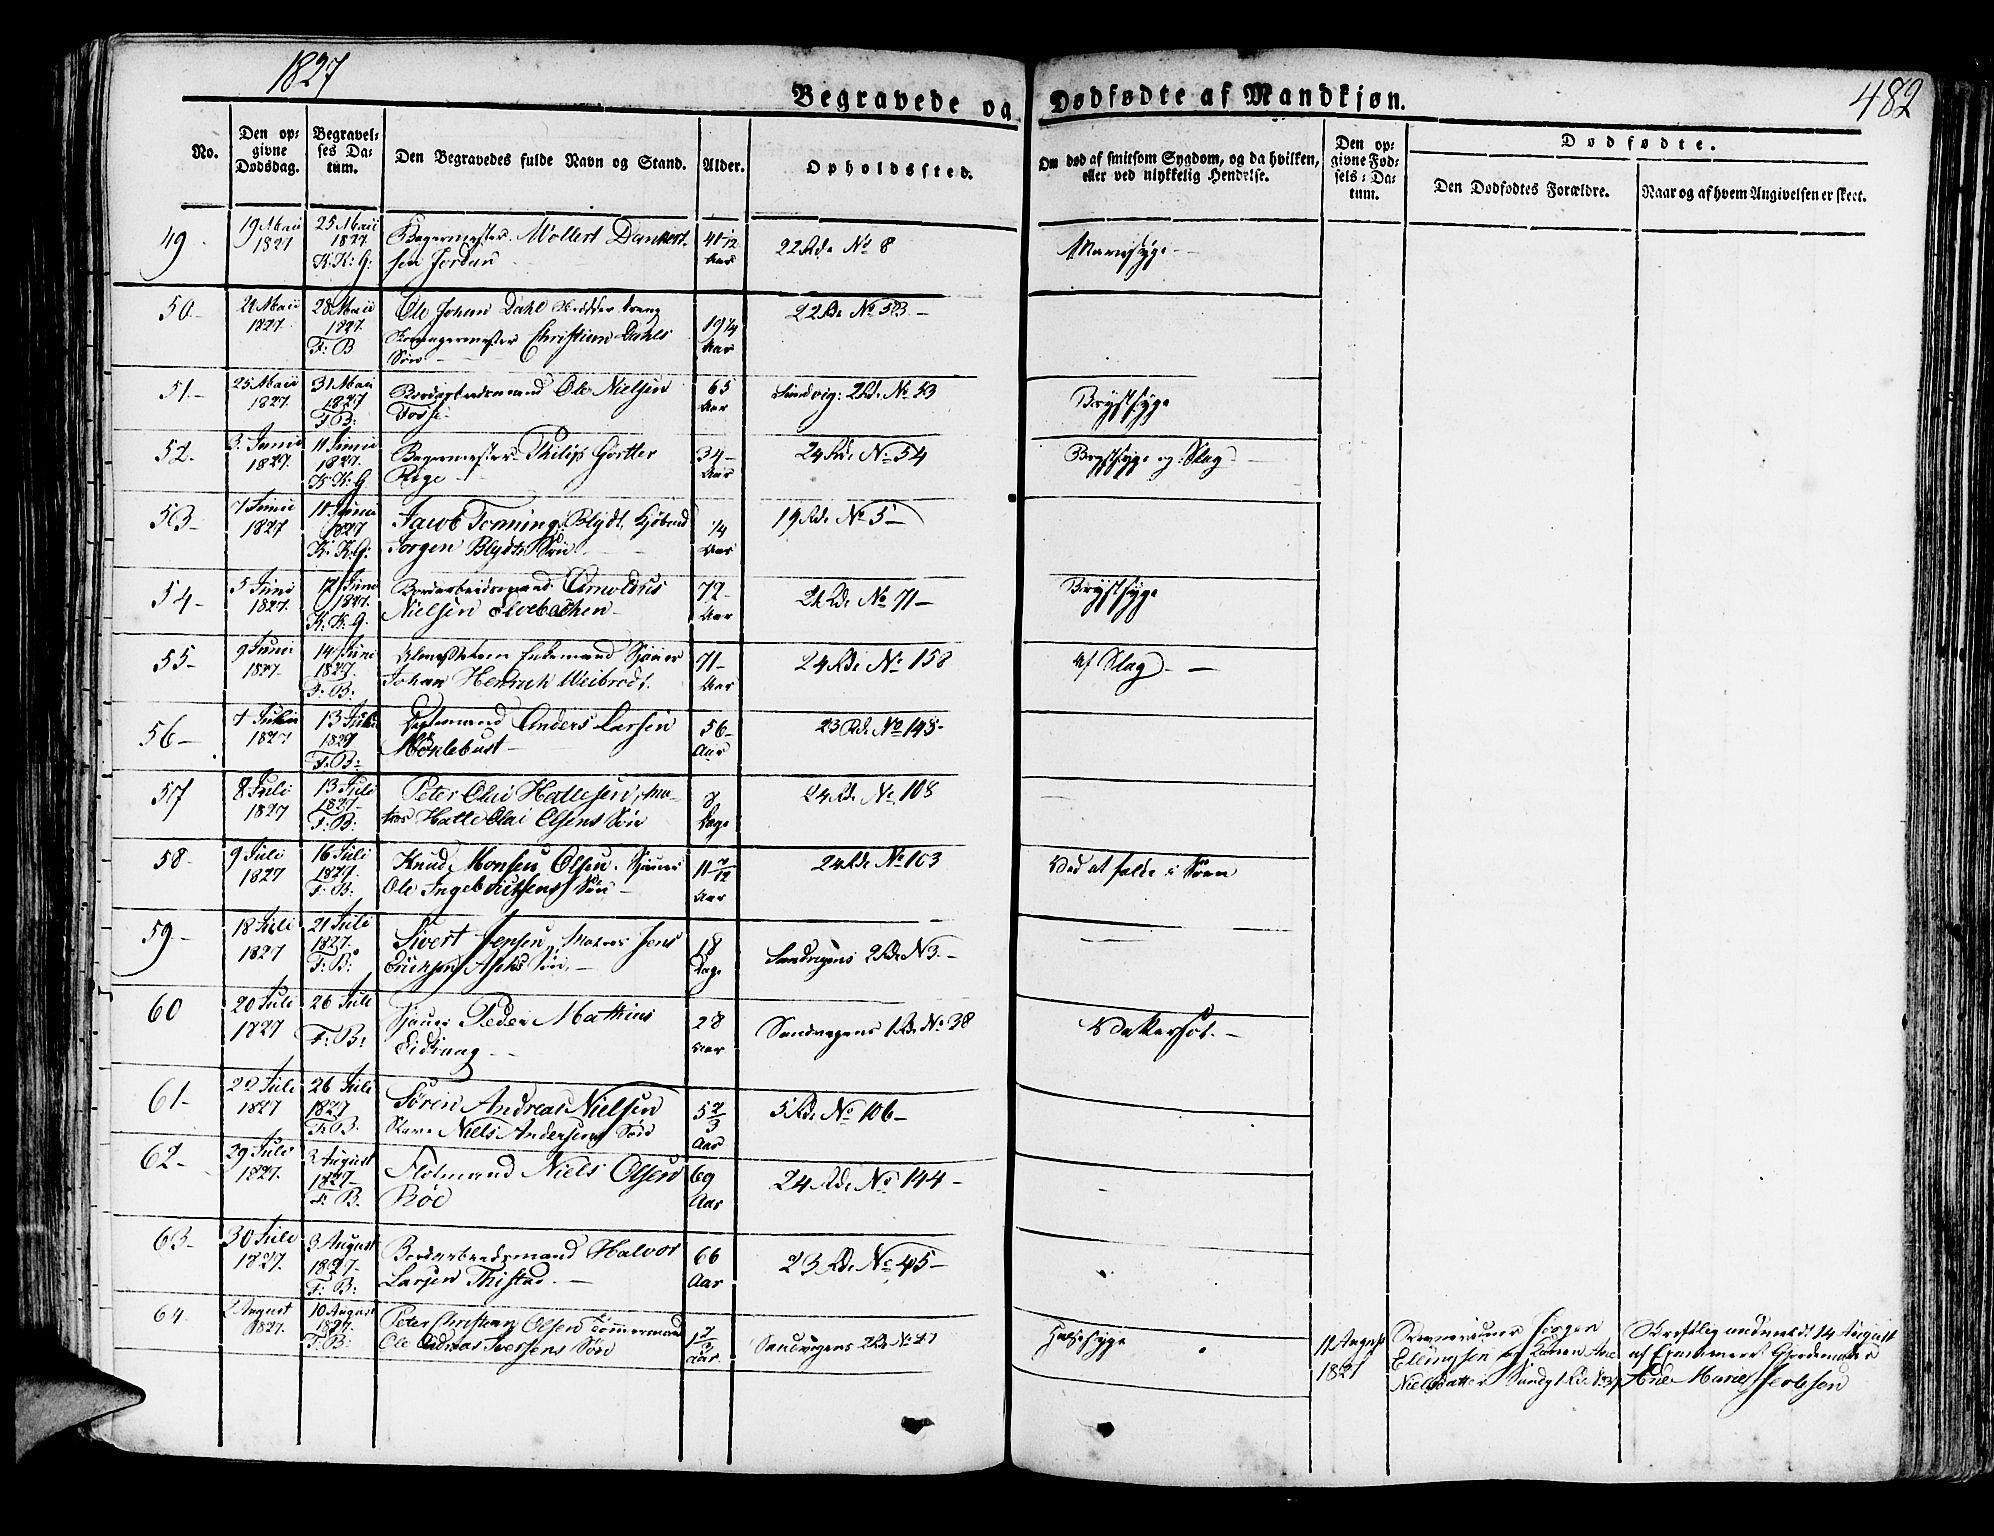 1827
482
Begravede og Dødfødte af Mandkjøn.
No.
Den op-
givne
Dødsdag.
Begravel-
ses Da-
tum.
Den Begravedes fulde Navn og Stand.
Alder.
Opholdssted.
Om død af smitsom Sygdom, og da hvilken,
eller ved ulykkelig Hendelse.
Den op-
givne Fød-
sels-Da-
tum.
Dødfødte.
Den Dødfødtes Forældre.
Naar og af hvem Angivelsen er skeet.
49
19 Maii
1827
25 Maii
1827
K. K: G:
Bagermester Møllert Dankert-
sen Jordan
Aar
22 Rde No 8
50
Maii
1827.
28 Maii
1827
F: B
Ole Johan Dahl
Christian Dahls
Søn
19 1/4
Aar
22 Rde No
51
25 Maii
1827
31 Maii
1827
F B:
Ole Nielsen
Fosse
65
Aar
Sandvig: 2 Rde No 53
Brystsyge
52.
3. Junii
1827.
11 Junii
1827.
K K. G
Bagermester Philip Görtler
Rege
34
Aar
24 Rde No 54
Brystsyge og Slag
53
7 Junii
1827
1827
K. K: G:
Jacob Tonning Blydt
Jørgen Blydts Søn
1/4
Aar
19 Rde No 5
54
5 Juni
1827.
12 Juni
1827.
K. K. G.
Bordarbeidsmand Arnoldus
Nielsen
72
Aar
2 Rde No 71
Brystsyge
55
9 Juni
1827
14 Juni
1827.
F. B:
Enkemand Sjouer
Johan Henrich Weibrodt.
71
Aar
24 Rde No 158
Af Slag
56
1827
13
1827
F. B:
Anders Larsen
Mønlebust
56
Aar
23 Rde No 148
57
8 Juli
1827
13 Juli
1827
F. B:
Peter Olai Hallesen, Ma-
tros Halle Olai Olsens Søn
8
Dage
24 Rde No 108
58
9 Juli
1827
16 Juli
1827.
F: B.
Knud Monsen Olsen. Sjouer
Ole Ingebrigtsens Søn
Aar
24 Rde No 103
Ved at falde i Søen
59
18 Juli
1827
21 Juli
1827.
F: B:
Sivert Jensen, Matros Jens
Erichsen Asches Søn,
18
Dage
Sandvigens 2 Rde N 3.
60
20 Juli
1827
26 Juli
F: B:
Sjouer Peder Mathias
Eidsvaag
28
Aar
Sandvigens 1 Rde No 38
Vattersot.
61
22 Juli
1827
26 Juli
1827
F: B.
Søren Andreas Nielsen
Niels Andersens Søn
5 2/3
Aar
5 Rde No 106
62
29 Juli
1827.
August
1827
F: B.
Flotmand Niels Olsen
Böe
69
Aar
24 Rde No 144
63
30 Juli
1827.
3 August
1827
F: B:
Bordarbeidsmand Halvor
Larsen Thistad.
66
Aar
23 Rde No 45
64
August
1827.
10 August
1827.
F: B:
Peter Christian Olsen Tømmermand
Ole Andreas Iversens Søn
1 2/3
Aar.
Sandvigens 2 Rde No
Halssyge
August
1827
Jørgen
Ellingsen og Konen Ane
Nielsdatter Sandv 1 Rde
Skriftlig anmeldt 14 August
af Examineret Gjordemoder
Ane Marie Jacobsen